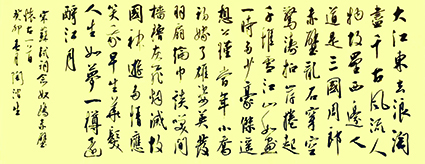 大江東去浪淘
盡千古風流人
物故壘西邊人
道是三國周郎
赤壁亂石穿空
驚濤拍岸捲起
千堆雪江山如畫
一時多少豪傑遙
想公瑾當年小喬
初嫁了雄姿英發
羽扇綸巾談笑間
檣櫓灰飛煙滅故
國神遊多情應
笑我早生華髮
人生如夢一樽還
酹江月
宋蘇軾詞念奴嬌赤壁
懷古一首
癸卯